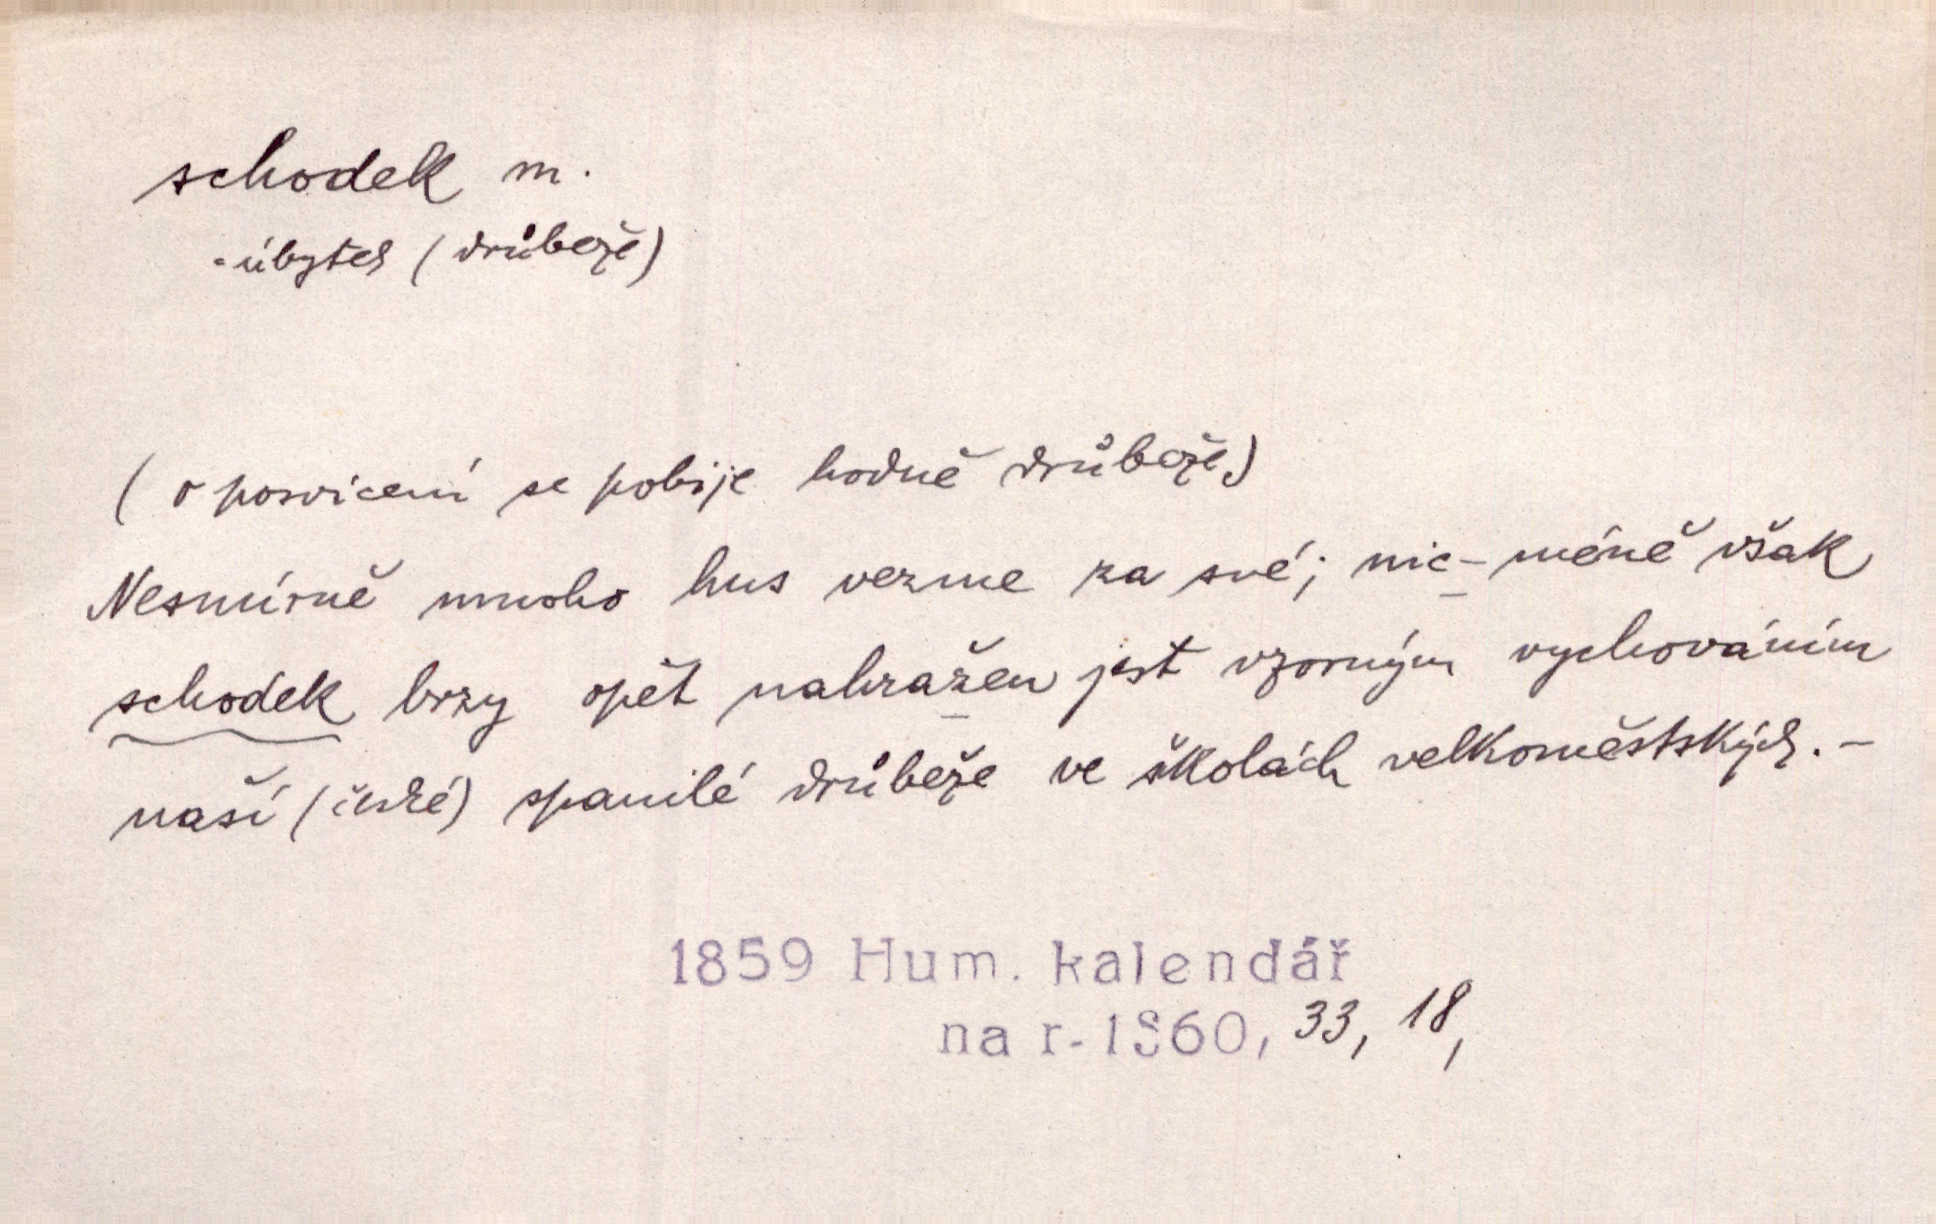 schodek m.
-úbytek (drůbeže)
(o posvícení se pobije hodně drůbeže)
Nesmírně mnoho hus vezme za své; nic-méně však
schodek brzy opět nahražen jest vzorným vychováním
naší (české) spanilé drůbeže ve školách velkoměstských. -
1859 Hum. kalendář
na r. 1860, 33, 18,